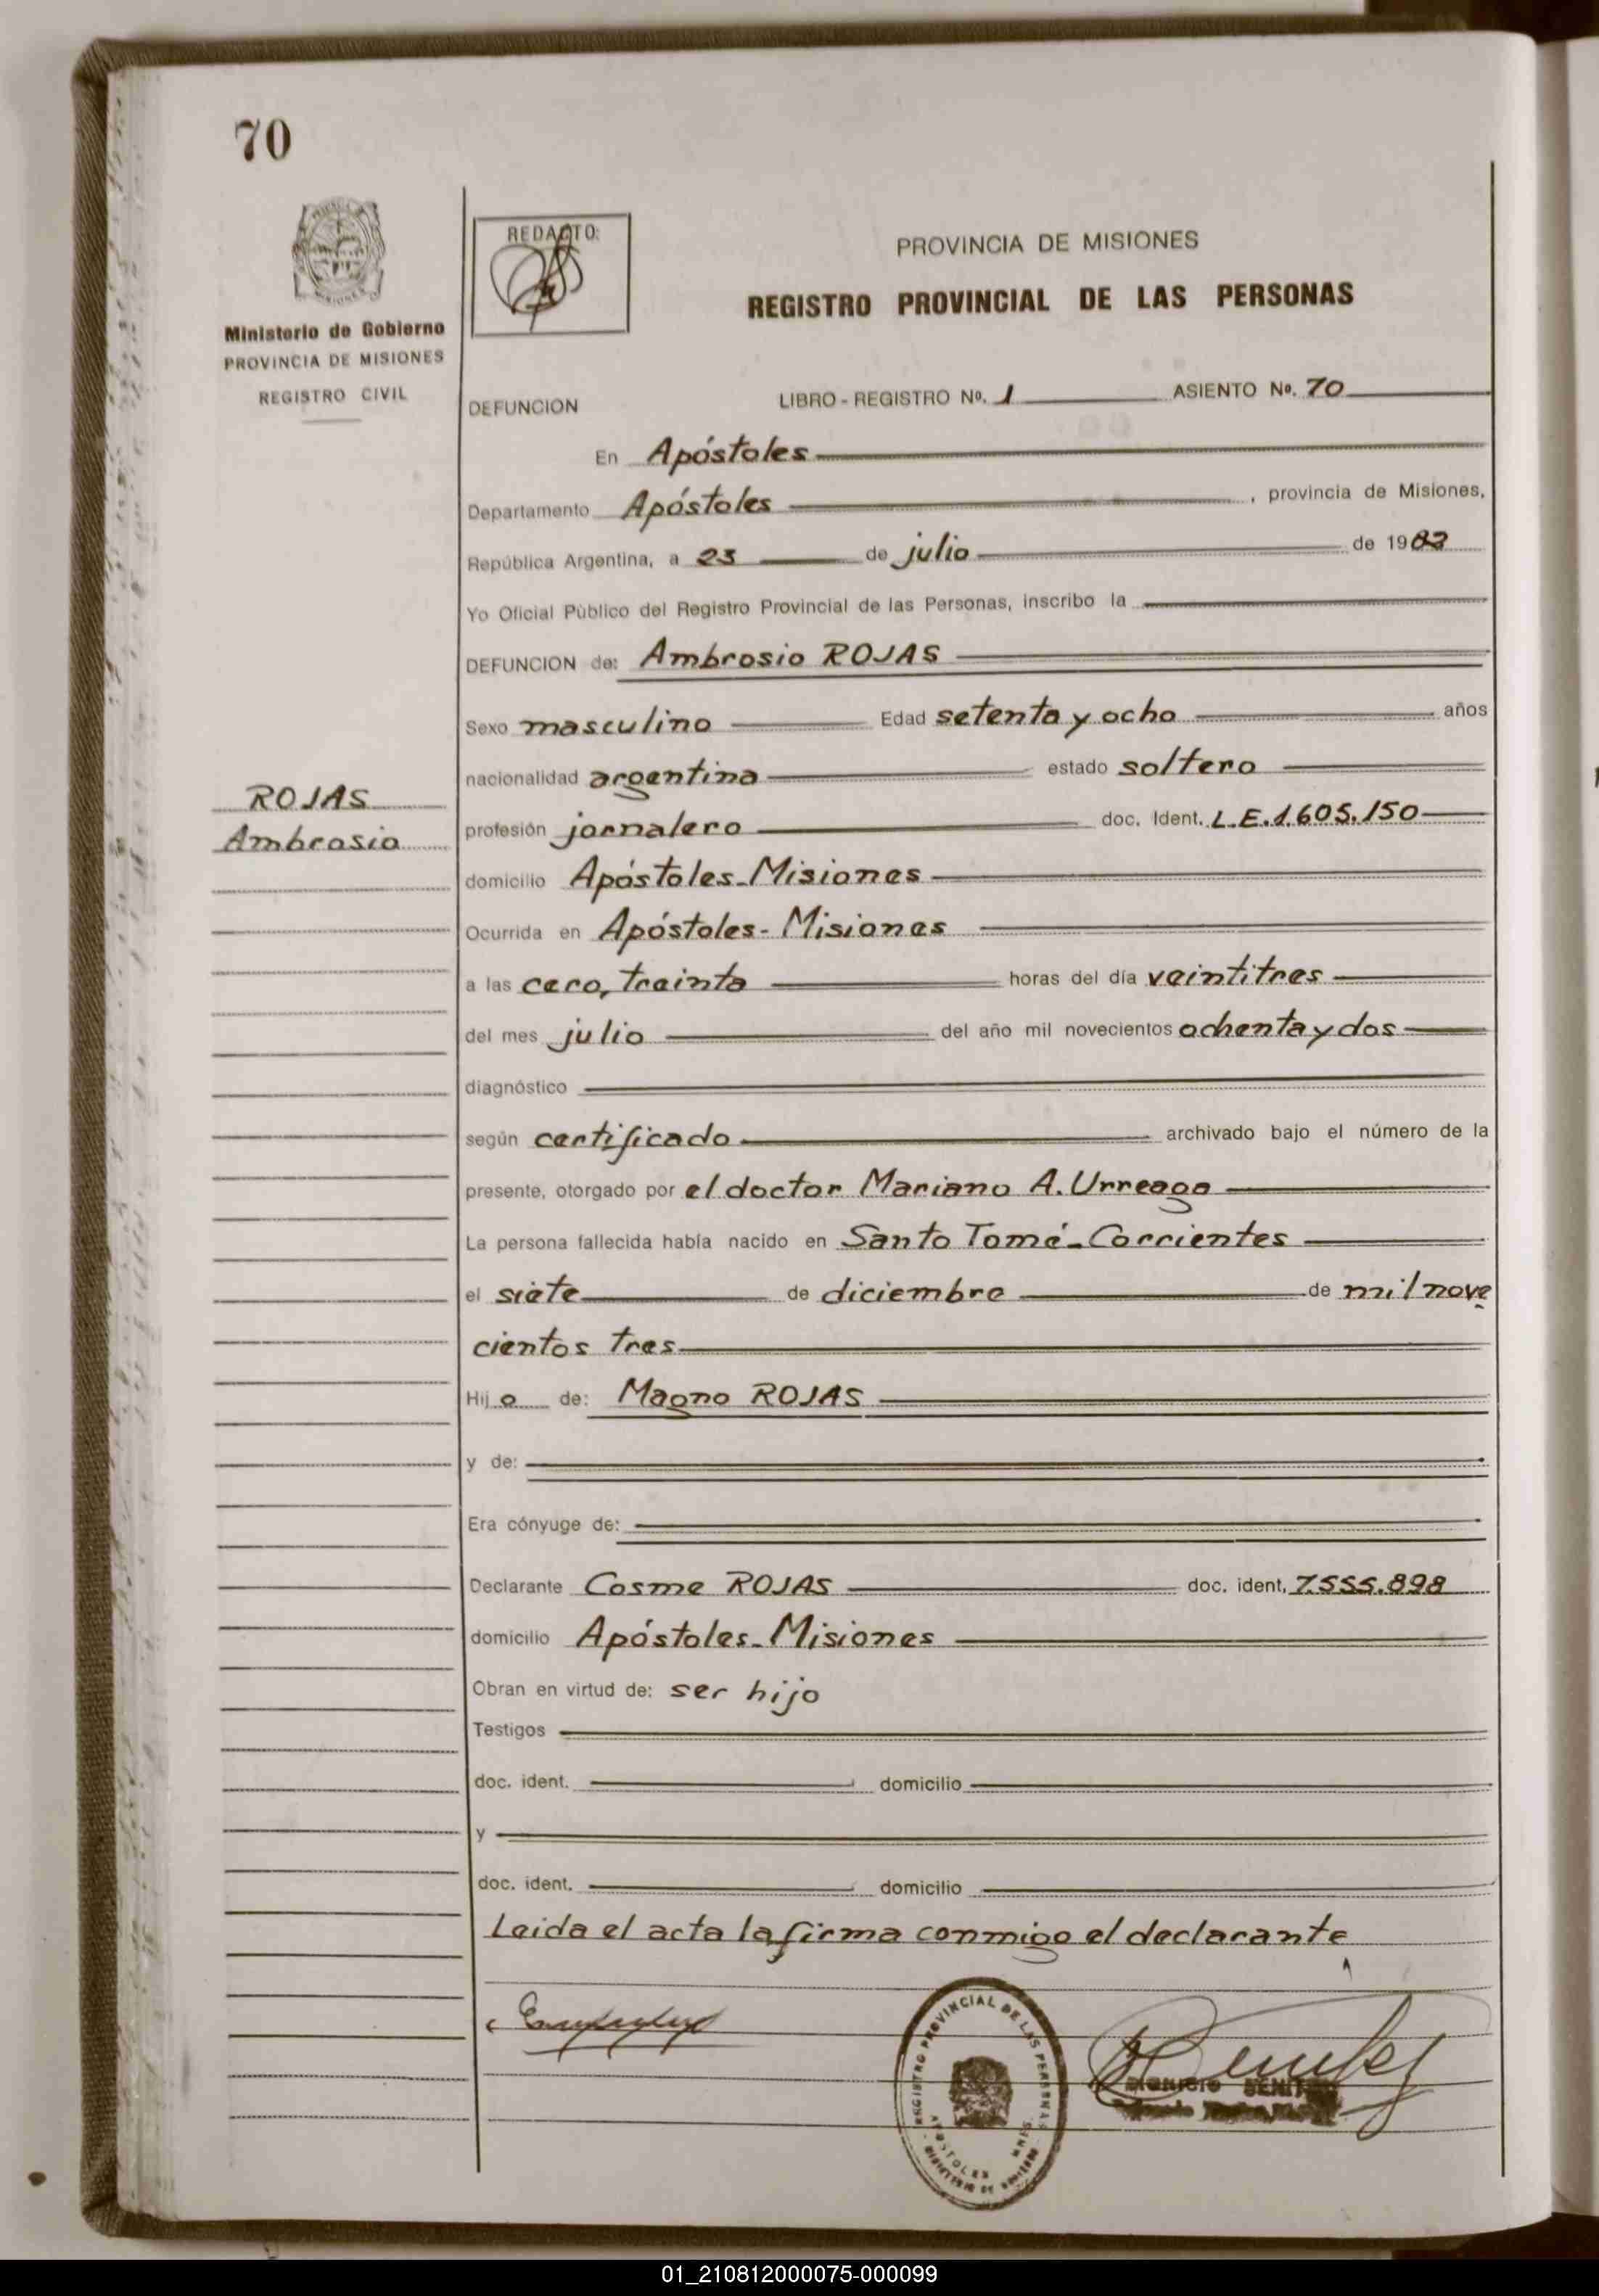 70
REDACTO:
PROVINCIA DE MISIONES
REGISTRO PROVINCIAL DE LAS PERSONAS
Ministerio de Gobierno
PROVINCIA DE MISIONES
REGISTRO CIVIL
DEFUNCION LIBRO - REGISTRO Nº. 1 ASIENTO Nº. 70
En Apóstoles
Departamento Apóstoles, provincia de Misiones,
República Argentina, a 23 de julio de 1982
Yo Oficial Público del Registro Provincial de las Personas, inscribo la
DEFUNCION de: Ambrosio ROJAS
Sexo masculino Edad setenta y ocho años
nacionalidad argentina estado soltero
ROJAS
Ambrosio
profesión jornalero doc. Ident. L.E.1.605.150
domicilio Apóstoles-Misiones
Ocurrida en Apóstoles- Misiones
a las cero, treinta horas del día veintitres
del mes julio del año mil novecientos ochenta y dos
diagnóstico
según certificado archivado bajo el número de la
presente, otorgado por el doctor Mariano A. Urreaga
La persona fallecida había nacido en Santo Tomé-Corrientes
el siete de diciembre de mil nove
cientos tres
Hijo de: Magno ROJAS
y de:
Era cónyuge de:
Declarante Cosme ROJAS doc. ident. 7.555.898
domicilio Apóstoles-Misiones
Obran en virtud de: ser hijo
Testigos
doc. ident. domicilio
y
doc. ident. domicilio
Leida el acta la firma conmigo el declarante
REGISTRO PROVINCIAL DE LAS PERSONAS
APOSTOLES
01_210812000075-000099